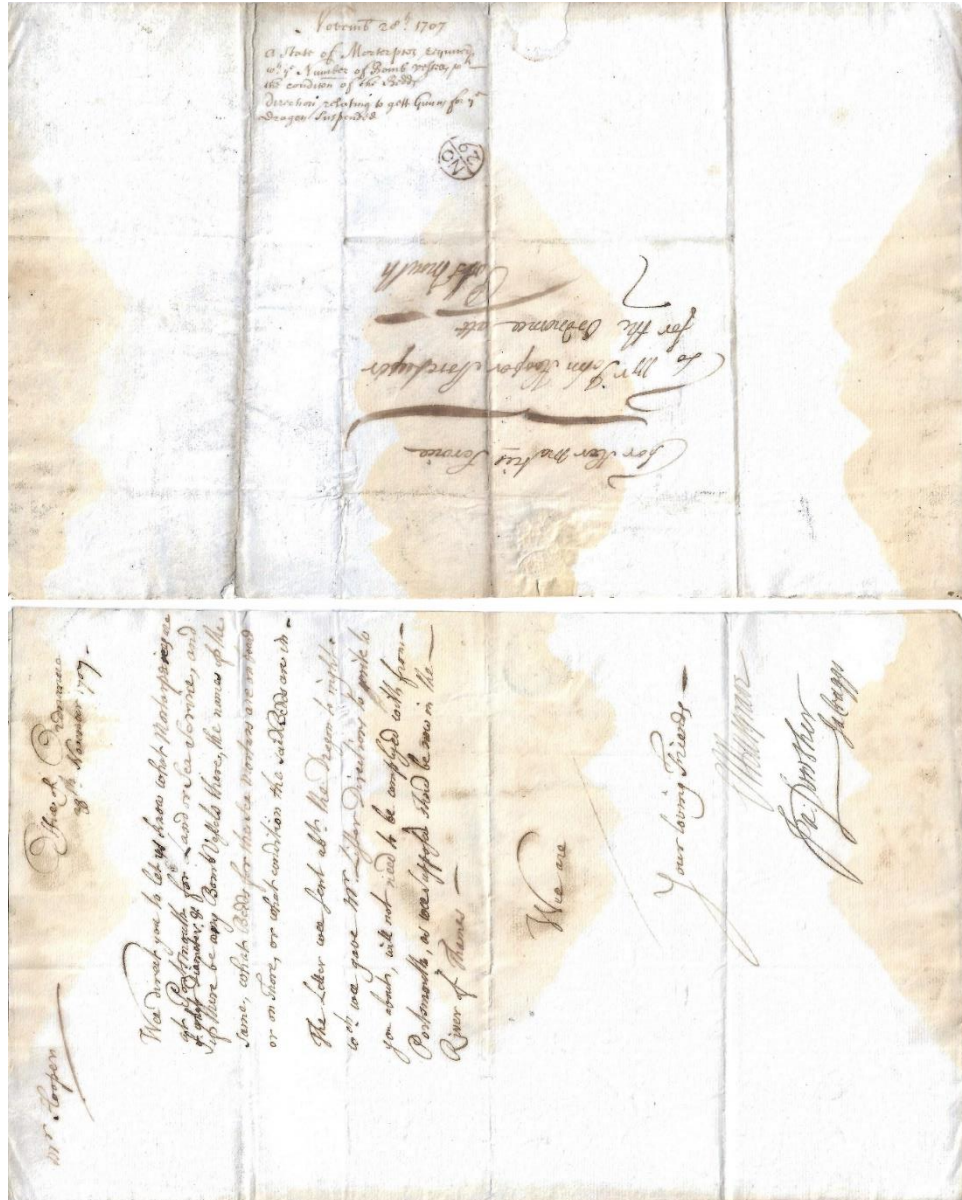 Novemb 28th 1707
a State of Morterpeeces requird,
wth ye Number of Bomb vessels, wth
the condition of the Bedds
direction relating to gett Gunns for ye
Dragon Suspended
NO
29
For Her Matie's Service
To Mr John Hooper Storekeeper
for the Ordnance att
Portsmouth
Office of Ordnance
28th Novembr 1707
Mr Hooper
Wee direct you to let us know what Morterpeices are
att Portsmouth for Land or Sea Service, and
of what Diameter, &
if there be any Bomb Vessels there, the names of the
same, what Bedds for those Mortars are on board
or on Shore, or what condition the said Bedds are in
The Letter wee sent abt the Dragon to night
wch we gave Mr Directions to write to
you about, will not need to be complyed with from
Portsmouth, as wee suppose shee'd be now in the
River of Thames
Wee are
Your loving Friends